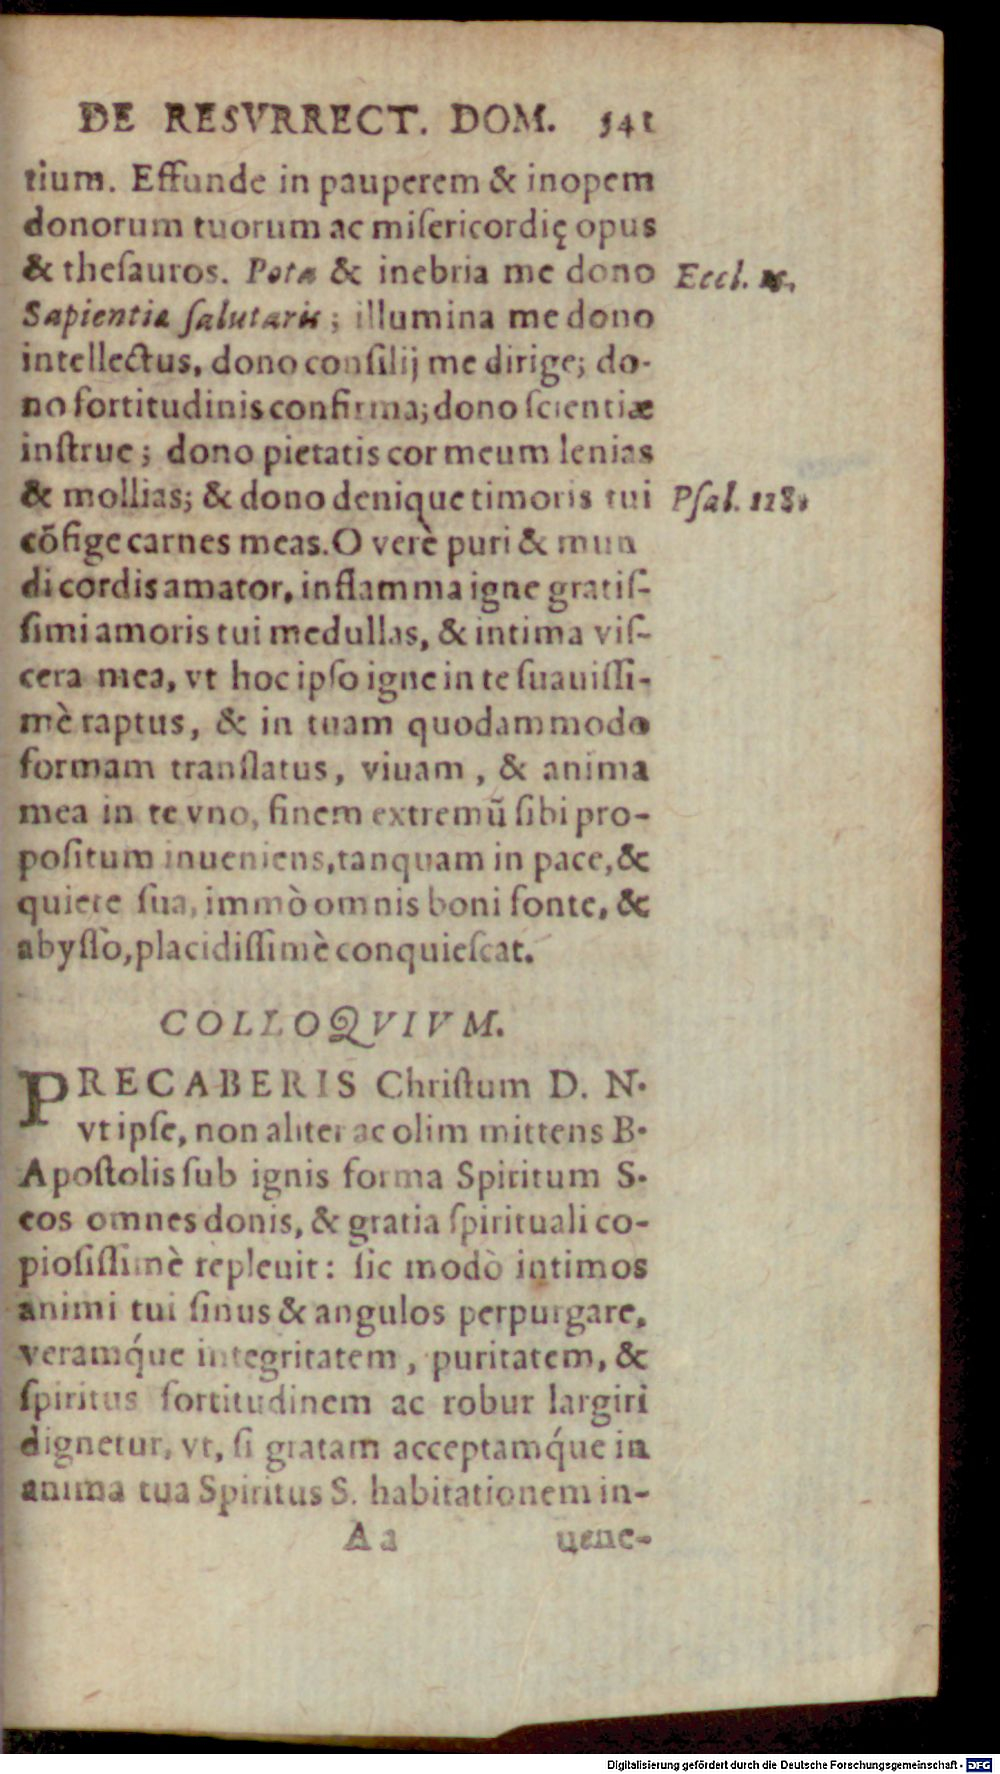 DE RESVRRECT. DOM. 541
tium. Effunde in pauperem & inopem
donorum tuorum ac miſericordię opus
& theſauros. Pota & inebria me dono
Eccl.
Sapientiæ ſalutaris; illumina me dono
intellectus, dono conſilij me dirige; do-
no fortitudinis confirma; dono ſcientiæ
inſtrue; dono pietatis cor meum lenias
& mollias; & dono denique timoris tui
Pſal. 118.
cõfige carnes meas. O verè puri & mun
di cordis amator, inflamma igne gratiſ-
ſimi amoris tui medullas, & intima viſ-
cera mea, vt hoc ipſo igne in te ſuauiſſi-
mè raptus, & in tuam quodammodo
formam tranſlatus, viuam, & anima
mea in te vno, finem extremũ ſibi pro-
poſitum inueniens, tanquam in pace, &
quiete ſua, immò omnis boni fonte, &
abyſſo, placidiſſimè conquieſcat.
COLLOQVIVM.
PRECABERIS Chriſtum D. N.
vt ipſe, non aliter ac olim mittens B.
Apoſtolis ſub ignis forma Spiritum S.
eos omnes donis, & gratia ſpirituali co-
pioſiſſimè repleuit: ſic modò intimos
animi tui ſinus & angulos perpurgare,
veramq́ue integritatem, puritatem, &
ſpiritus fortitudinem ac robur largiri
dignetur, vt, ſi gratam acceptamq́ue in
anima tua Spiritus S. habitationem in-
Aa uene-
Digitalisierung gefördert durch die Deutsche Forschungsgemeinschaft - DFG